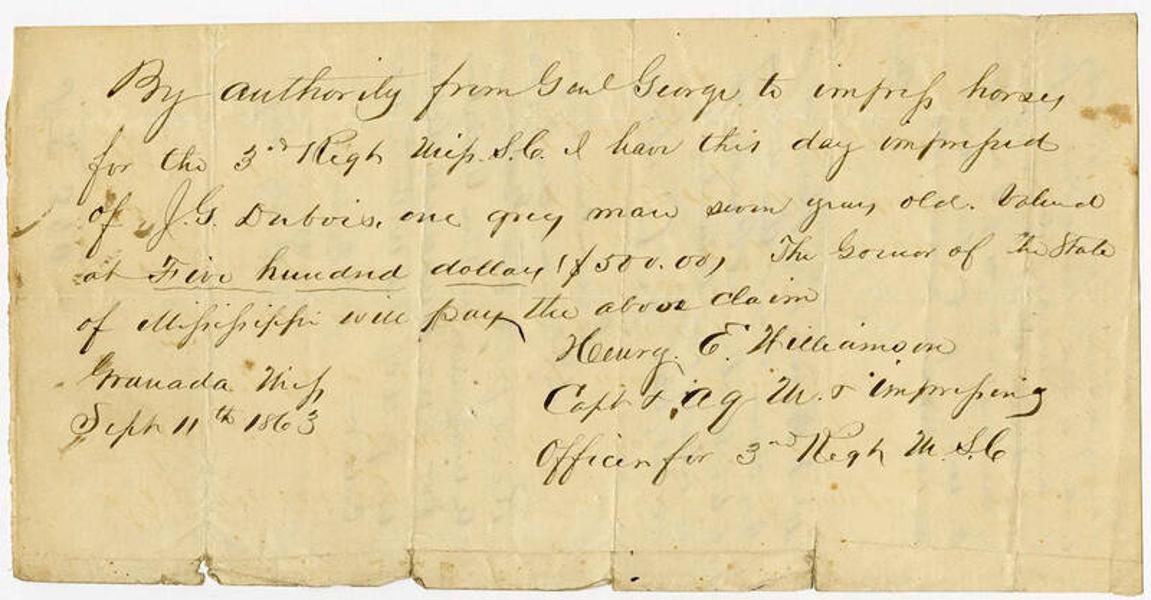 By authority from Genl George to impress horses
for the 3rd Regt Miss. S.C. I have this day impressed
of J.G. Dubois, one grey mare seven years old. Valued
at Five hundred dollars ($500.00) The Govnor of the State
of Mississippi will pay the above claim
Henry. E. Williamson
Granada Miss
Capt & aq M. & impressing
Sept 11th 1863
Officer for 3rd Regt M. S.C